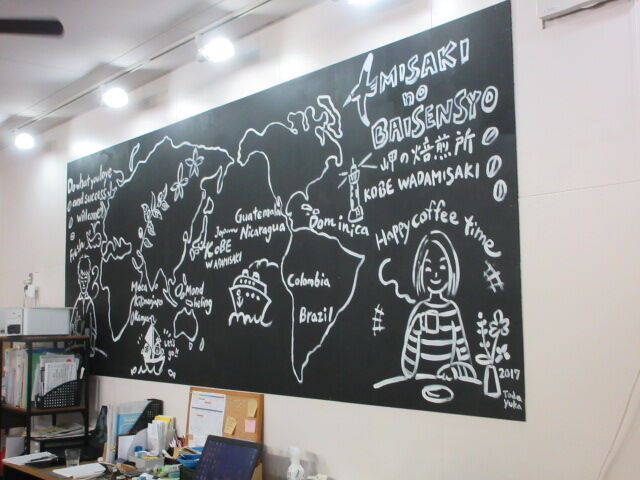 Do what you love
and success
welcome
MISAKI
no
BAISENSYO
岬の焙煎所
KOBE WADAMISAKI
Happy coffee time
Guatemala
Nicaragua
Dominica
Japan
KOBE
WADAMISAKI
Colombia
Brazil
Moca
Kilimanjaro
Kenya
Mandheling
Let's
go!!
2017
Toda
Yuka